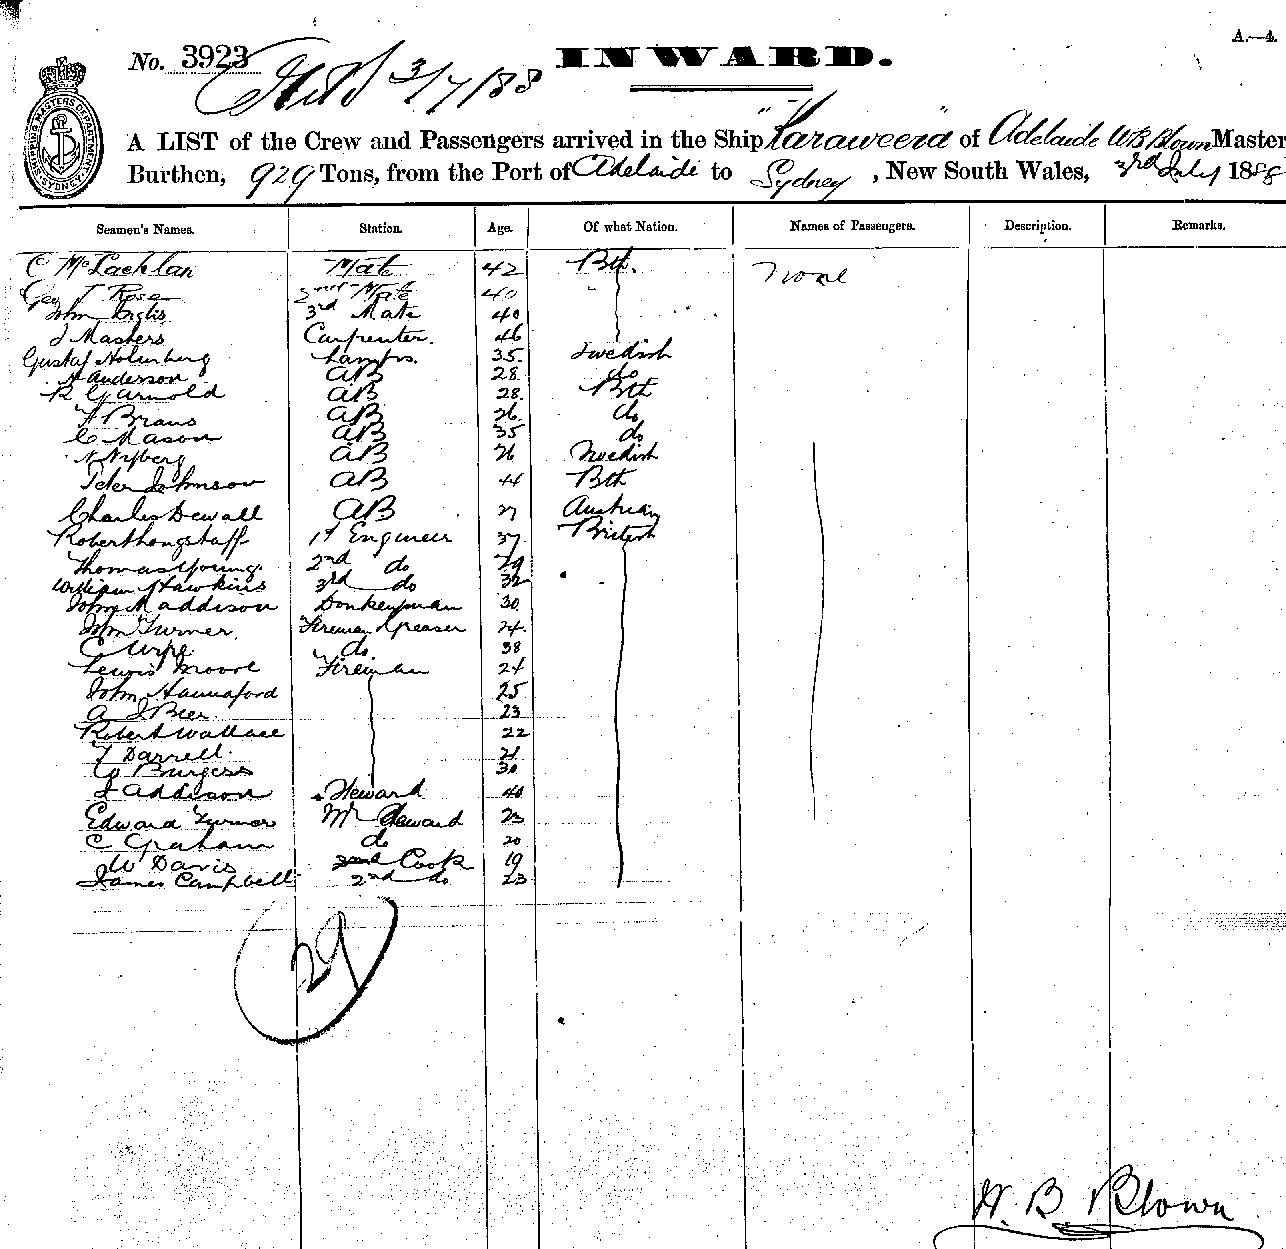 A.—4.
No. 3923
INWARD.
3/7/88
A LIST of the Crew and Passengers arrived in the Ship "Karaweera" of Adelaide W B Blown Master
Burthen, 929 Tons, from the Port of Adelaide to Sydney, New South Wales, 3rd July 1888
SHIPPING MASTERS DEPARTMENT SYDNEY
Seamen's Names. Station. Age. Of what Nation. Names of Passengers. Description. Remarks.
C McLachlan Mate 42 Bth. None
Geo T Rose 2nd Mate 40
John Inglis 3rd Mate 40
J Masters Carpenter. 46
Gustaf Holmberg Lamps. 35. Swedish
A Anderson AB 28 do
R G Arnold AB 28. Bth
Braus AB 26 do
C Mason AB 35 do
N Nyberg AB 26 Swedish
Peter Johnson AB 44 Bth
Charles Dewall AB 27 Austrian
Robert Longstaff 1st Engineer 37 British
Thomas Young. 2nd do 29
William Hawkins 3rd do 32
John Maddison Donkeyman 30
John Turner. Fireman & Greaser 24.
C do. 38
Lewis Moore Fireman 24
John Hannaford 25
A J Beer. 23
Robert Wallace 22
Darrell. 21
G Burgess 30
J Addison Steward 40
Edward Turner Steward 23
C Graham do 20
W Davis Cook 19
James Campbell 2nd do 23
29
W. B. Blown